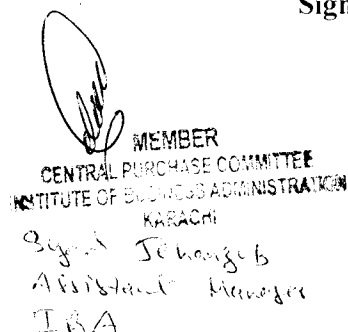 Sign
MEMBER
CENTRAL PURCHASE COMMITTEE
INSTITUTE OF BUSINESS ADMINISTRATION
KARACHI
Assistant Manager
IBA